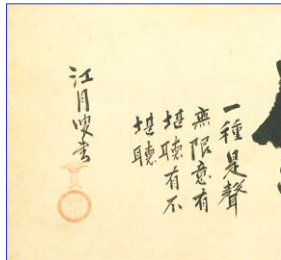 一種是聲
無限意有
堪聽有不
堪聽
江月叟書